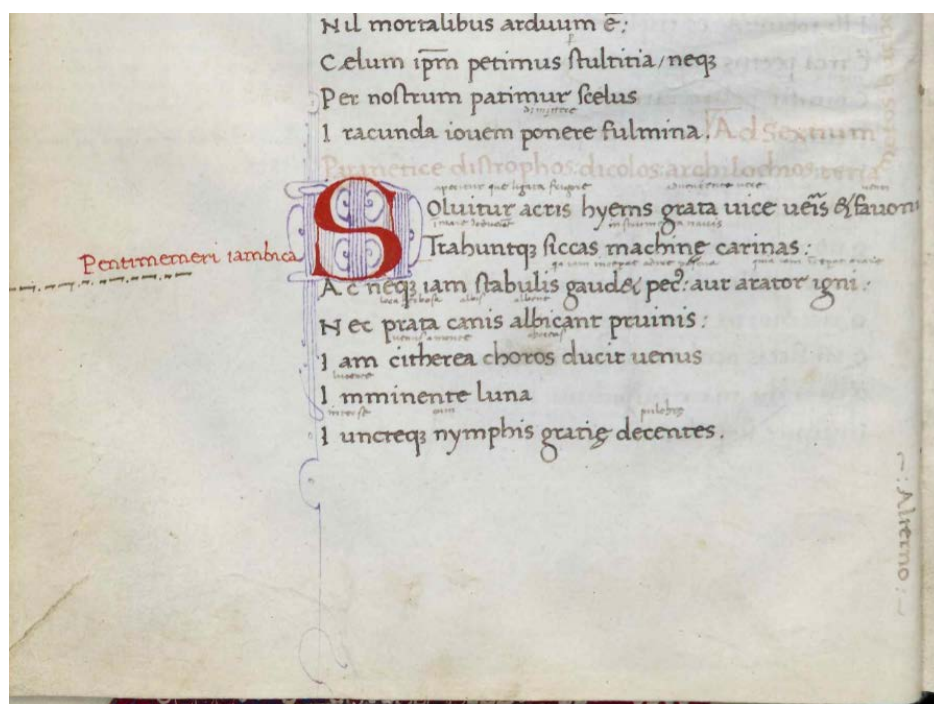 Nil mortalibus arduum ē:
Cælum ip̄m petimus stultitia/neqꝫ
Per nostrum patimur scelus
dimittere
Iracunda iouem ponere fulmina. Ad Sextium
Parænetice distrophos. dicolos. archilochios.
Soluitur acris hyems grata uice ueris̄ & fauoni
Trahuntqꝫ siccas machinę carinas:
Pentimemeri iambica
Ac neqꝫ iam stabulis gaudet pec⁹: aut arator igni:
albent
Nec prata canis albicant pruinis:
Iam citherea choros ducit uenus
Imminente luna
Iuncteqꝫ nymphis gratię decentes.
~: Alterno :~